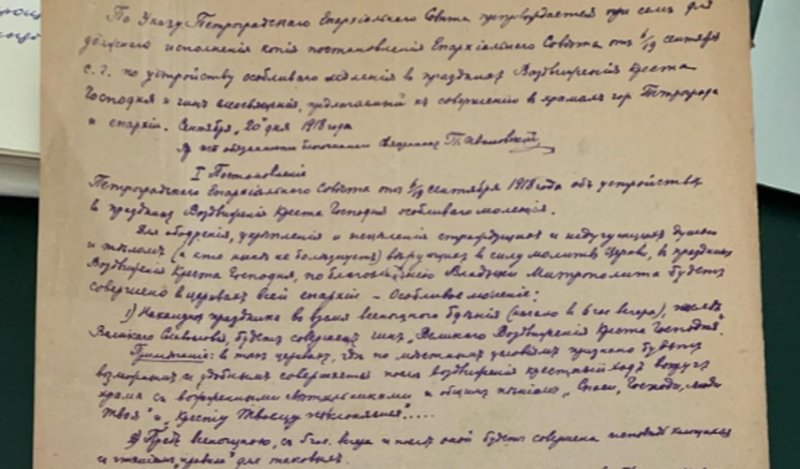 По Указу Петроградскаго Епархіальнаго Совѣта препровождается при семъ для
должнаго исполненія копія постановленія Епархіальнаго Совѣта отъ 6/19 сентября
с. г. по устройству особливаго моленія въ праздникъ Воздвиженія Креста
Господня и чинъ всеосвященія, предлагаемый къ совершенію въ храмахъ гор. Петрограда
и епархіи. Сентября „20" дня 1918 года
обязанности благочиннаго священникъ П.
I Постановленіе
Петроградскаго Епархіальнаго Совѣта отъ 6/19 сентября 1918 года объ устройствѣ
въ праздникъ Воздвиженія Креста Господня особливаго моленія.
Для ободренія, укрѣпленія и исцѣленія страждущихъ и недугующихъ душею
и тѣломъ (а кто нынѣ не болѣзнуетъ) вѣрующихъ въ силу молитвъ Церкви, въ праздникъ
Воздвиженія Креста Господня, по благословенію Владыки Митрополита будетъ
совершено въ церквахъ всей епархіи – Особливое моленіе:
1) Наканунѣ праздника во время всенощнаго бдѣнія (начало въ 6 час вечера), послѣ
Великаго Славословія, будетъ совершенъ чинъ „Великаго Воздвиженія Креста Господня".
Примѣчаніе: въ тѣхъ церквахъ, гдѣ по мѣстнымъ условіямъ признано будетъ
возможнымъ и удобнымъ совершается послѣ воздвиженія крестный ходъ вокругъ
храма съ возженными свѣтильниками и общимъ пѣніемъ „Спаси, Господи, люди
Твоя" и „Кресту Твоему поклоняемся".....
2) Предъ всенощною, съ 5 час. вечера и послѣ оной будетъ совершена исповѣдь
и чтеніемъ „правила" для таковыхъ.